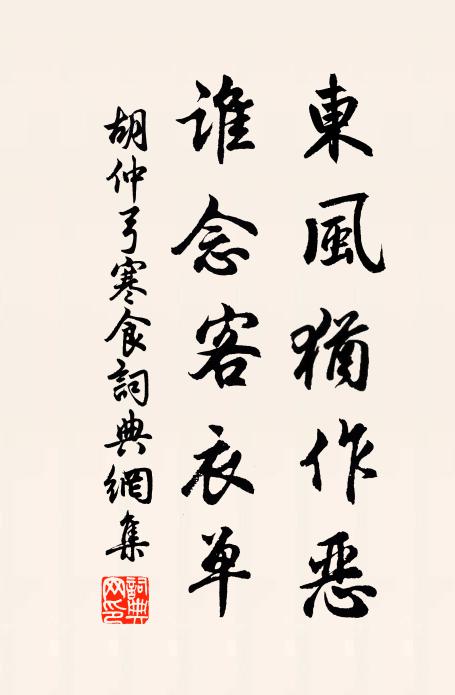 東風猶作惡
誰念客衣单
胡仲弓寒食詞典網集
詞典網印